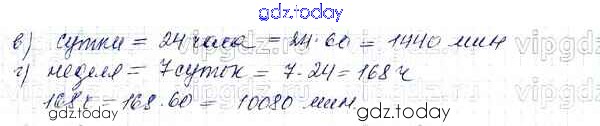 gdz.today
в) сутки = 24 часа = 24·60 = 1440 мин
г) неделя = 7 суток = 7·24 = 168 ч
168 ч = 168·60 = 10080 мин.
gdz.today gdz.today